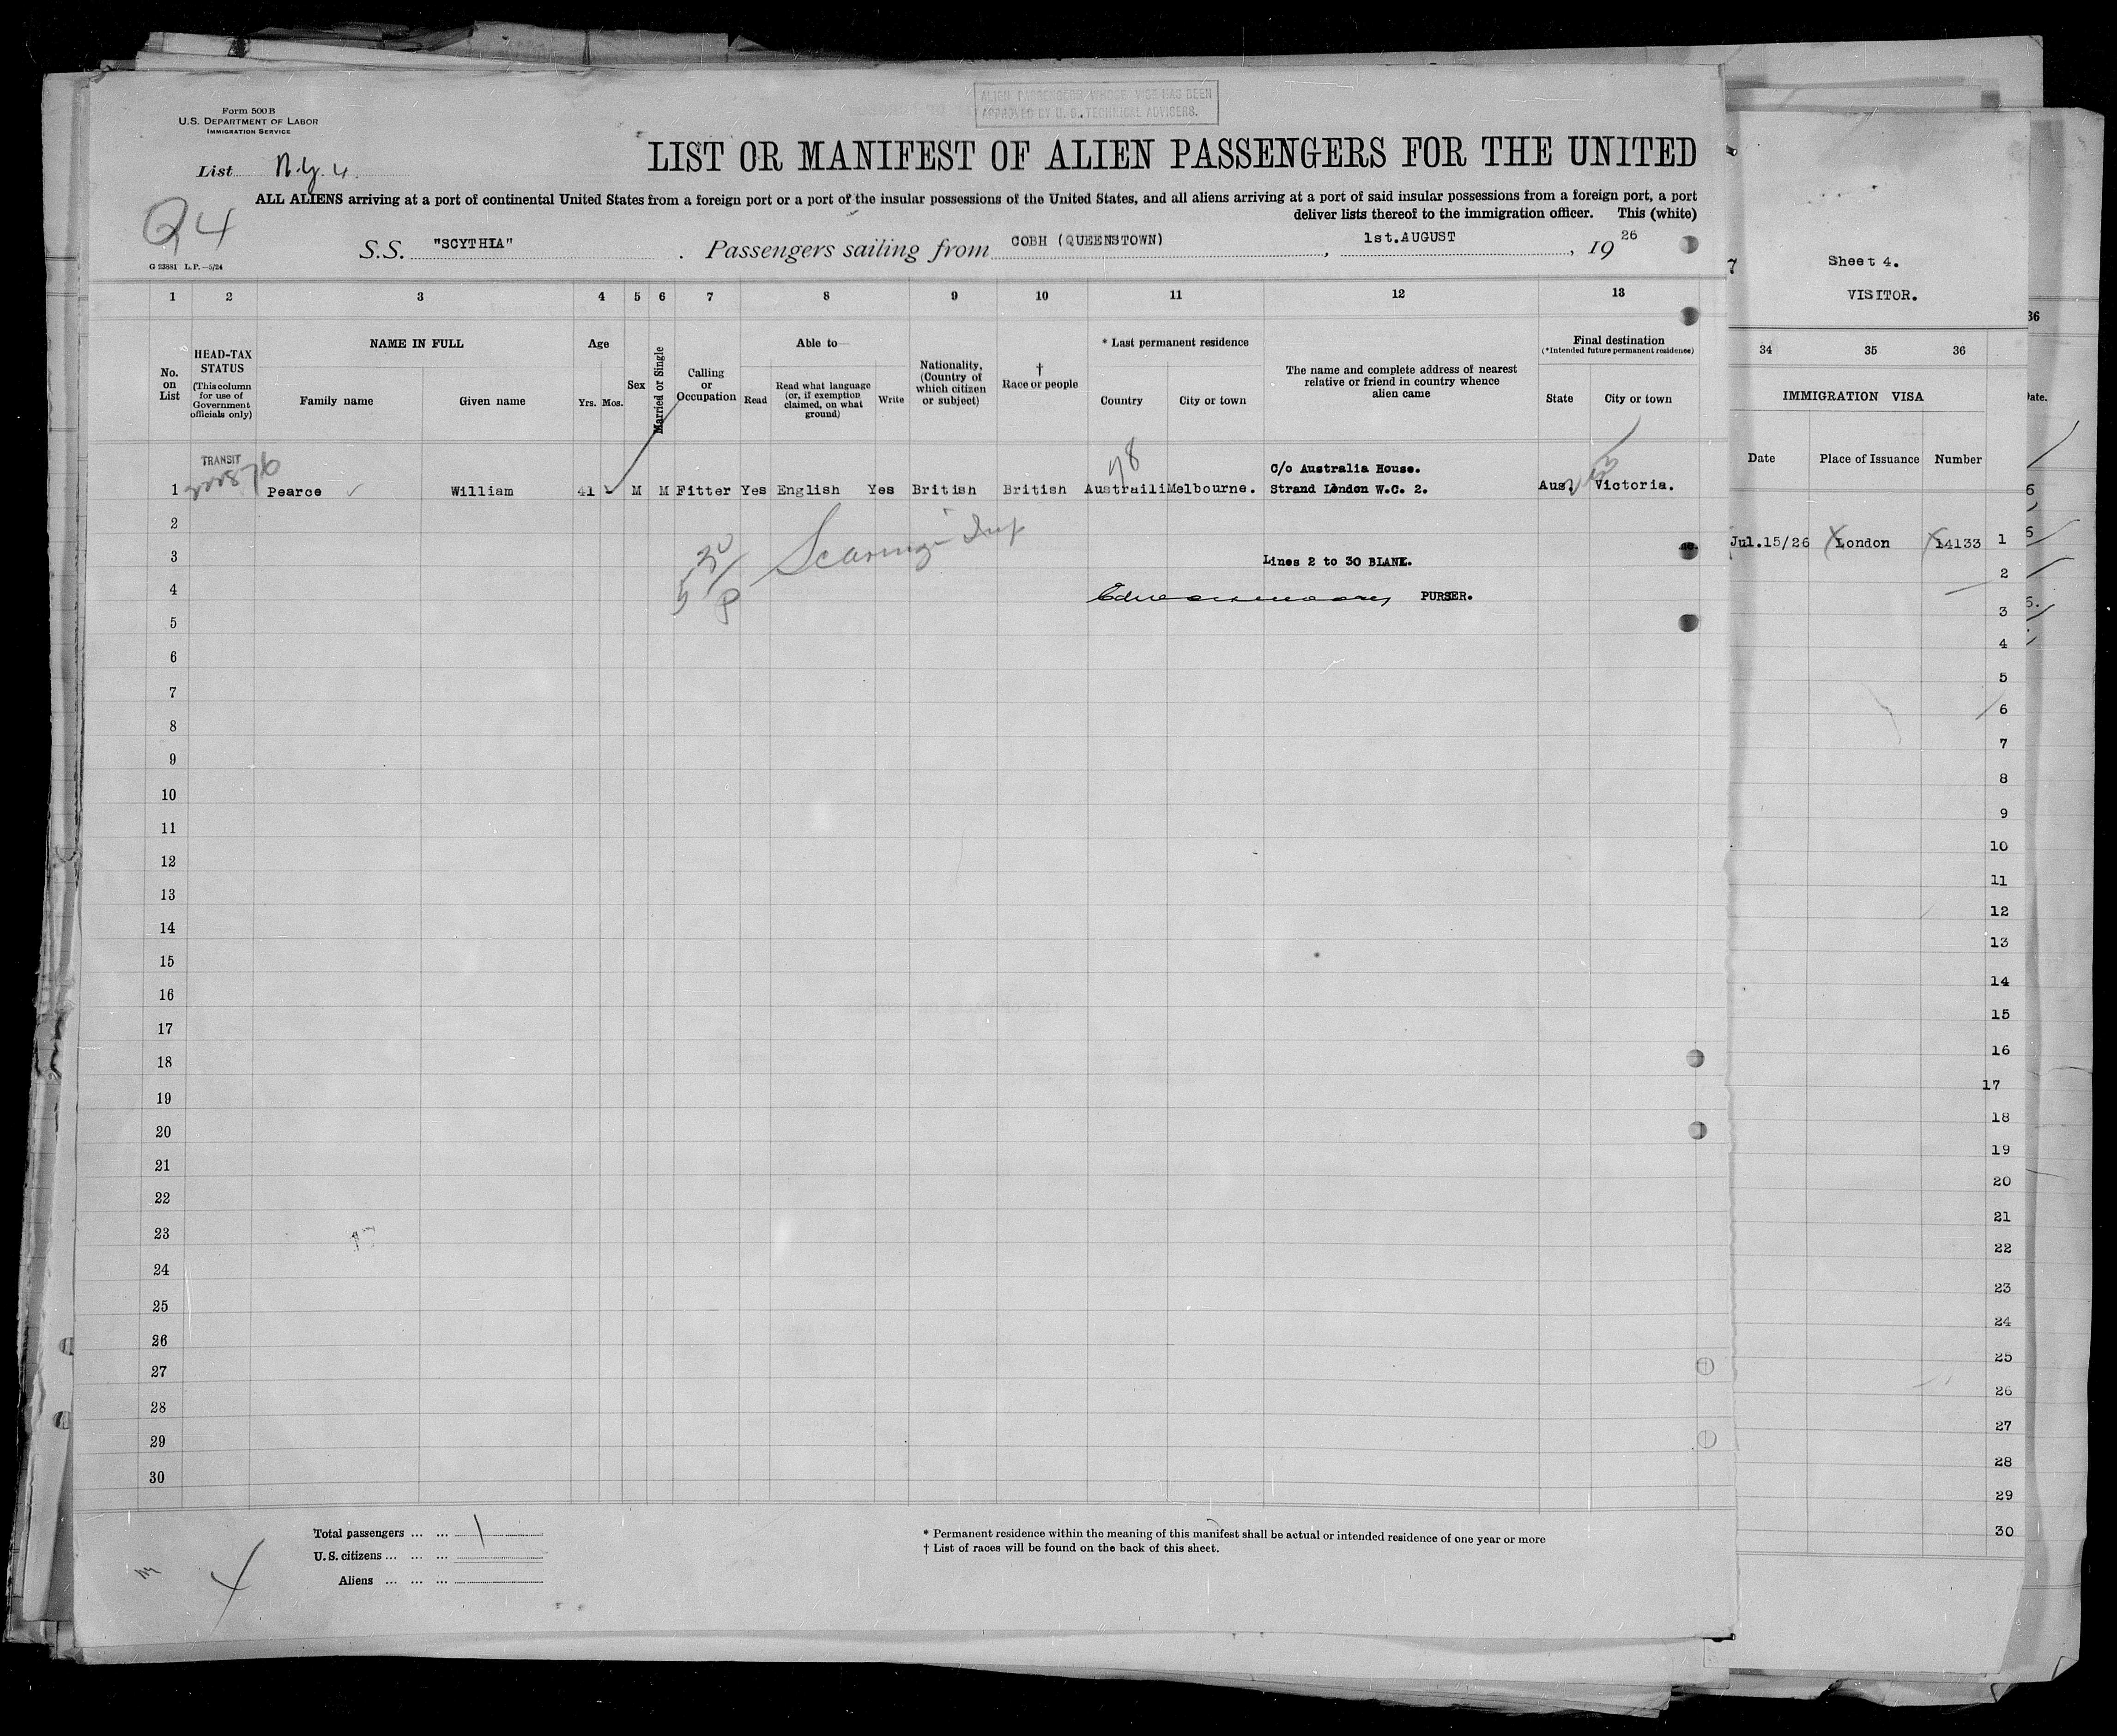 ALIEN PASSENGERS WHOSE VISE HAS BEEN
APPROVED BY U. S. TECHNICAL ADVISERS.
Form 500 B
U.S. DEPARTMENT OF LABOR
IMMIGRATION SERVICE
List N.Y. 4.
LIST OR MANIFEST OF ALIEN PASSENGERS FOR THE UNITED
ALL ALIENS arriving at a port of continental United States from a foreign port or a port of the insular possessions of the United States, and all aliens arriving at a port of said insular possessions from a foreign port, a port
deliver lists thereof to the immigration officer. This (white)
24
S.S. "SCYTHIA". Passengers sailing from COBH (QUEENSTOWN), 1st.AUGUST, 1926
G 23881 L.P.—5/24
1 2 3 4 5 6 7 8 9 10 11 12 13
No. on List
HEAD-TAX STATUS
(This column for use of Government officials only)
NAME IN FULL
Family name Given name
Age
Yrs. Mos.
Sex
Married or Single
Calling or Occupation
Able to
Read
Read what language (or, if exemption claimed, on what ground)
Write
Nationality, (Country of which citizen or subject)
† Race or people
* Last permanent residence
Country City or town
The name and complete address of nearest relative or friend in country whence alien came
Final destination
(*Intended future permanent residence)
State City or town
TRANSIT
78
C/o Australia House.
1 Pearce William 41 M M Fitter Yes English Yes British British Austraili Melbourne. Strand London W.C. 2. Aus. Victoria.
2
3 Lines 2 to 30 BLANK.
4 PURSER.
5
6
7
8
9
10
11
12
13
14
15
16
17
18
19
20
21
22
23
24
25
26
27
28
29
30
Total passengers ... ... 1
U.S. citizens ... ... ...
Aliens ... ... ...
* Permanent residence within the meaning of this manifest shall be actual or intended residence of one year or more
† List of races will be found on the back of this sheet.
Sheet 4.
VISITOR.
34 35 36
IMMIGRATION VISA
Date Place of Issuance Number
Jul.15/26 London 14133 1
2
3
4
5
6
7
8
9
10
11
12
13
14
15
16
17
18
19
20
21
22
23
24
25
26
27
28
29
30
36